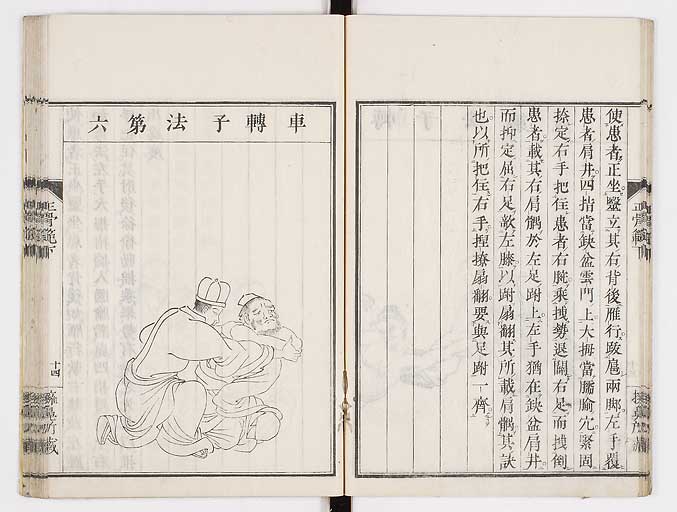 使患者正坐醫立其右背後雁行跋扈兩脚左手覆
患者肩井四指當缺盆雲門上大拇當臑腧穴緊固
捺定右手把住患者右腕乘拽勢退闢右足而拽倒
患者載其右肩髃於左足跗上左手猶在缺盆肩井
而抑定屈右足欹左膝以跗扇翻其所載肩髃其訣
也以所把住右手捏撩扇翻要與足跗一齊
正骨範下
車轉子法第六
正骨範下
十四